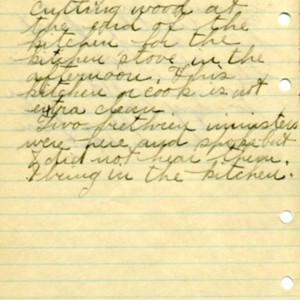 cutting wood at
the end of the
kitchen for the
kitchen stove in the
afternoon. This
kitchen cook is not
extra clean.
Two brethren ministers
were here and spoke but
I did not hear them.
I being in the kitchen.